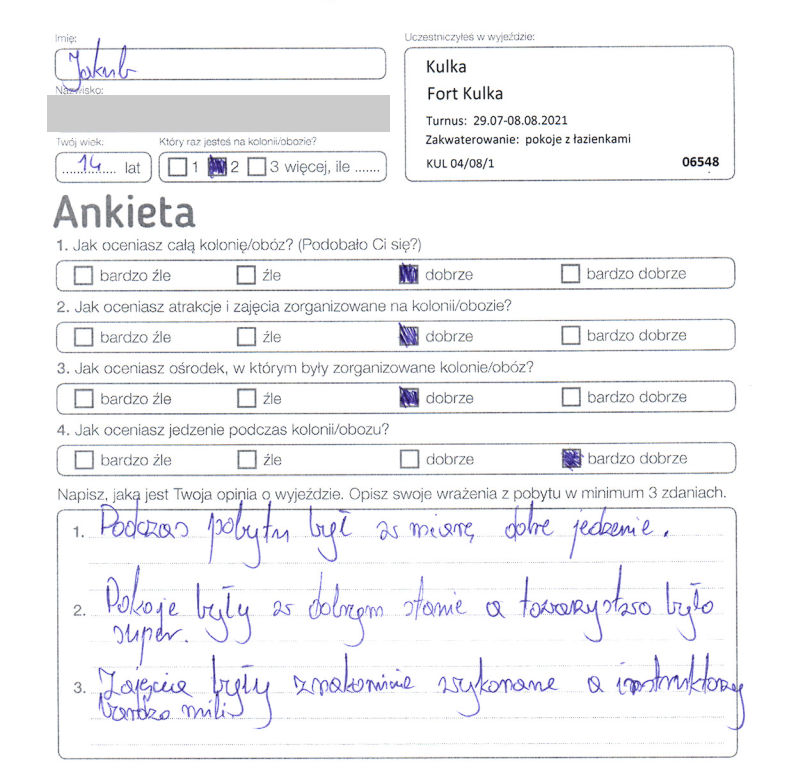 Imię:
Jakub
Nazwisko:
Twój wiek:
14 lat
Który raz jesteś na kolonii/obozie?
1 2 3 więcej, ile .......
Uczestniczyłeś w wyjeździe:
Kulka
Fort Kulka
Turnus: 29.07-08.08.2021
Zakwaterowanie: pokoje z łazienkami
KUL 04/08/1 06548
Ankieta
1. Jak oceniasz całą kolonię/obóz? (Podobało Ci się?)
bardzo źle źle dobrze bardzo dobrze
2. Jak oceniasz atrakcje i zajęcia zorganizowane na kolonii/obozie?
bardzo źle źle dobrze bardzo dobrze
3. Jak oceniasz ośrodek, w którym były zorganizowane kolonie/obóz?
bardzo źle źle dobrze bardzo dobrze
4. Jak oceniasz jedzenie podczas kolonii/obozu?
bardzo źle źle dobrze bardzo dobrze
Napisz, jaka jest Twoja opinia o wyjeździe. Opisz swoje wrażenia z pobytu w minimum 3 zdaniach.
1. Podczas pobytu był w miarę dobre jedzenie.
2. Pokoje były w dobrym stanie a towarzystwo było
super.
3. Zajęcia były znakomicie wykonane a instruktorzy
bardzo mili